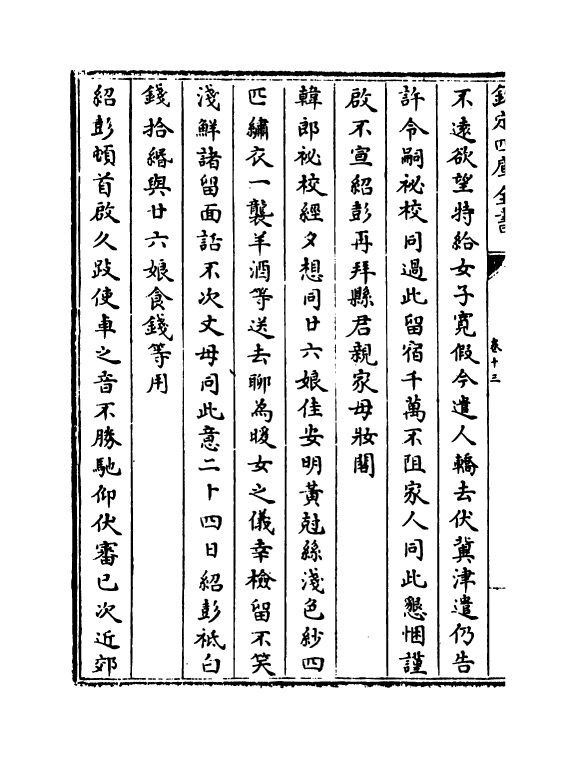 欽定四庫全書
卷十三
不遠欲望特給女子寛假今遣人轎去伏冀津遣仍告
許令嗣祕校同過此留宿千萬不阻家人同此懇悃謹
啟不宣紹彭再拜縣君親家母妝閣
韓郎祕校經夕想同廿六娘佳安明黃尅絲淺色紗四
匹繡衣一襲羊酒等送去聊為暖女之儀幸檢留不笑
淺鮮諸留面話不次丈母同此意二十四日紹彭祗白
錢拾緡與廿六娘食錢等用
紹彭頓首啟久跂使車之音不勝馳仰伏審已次近郊